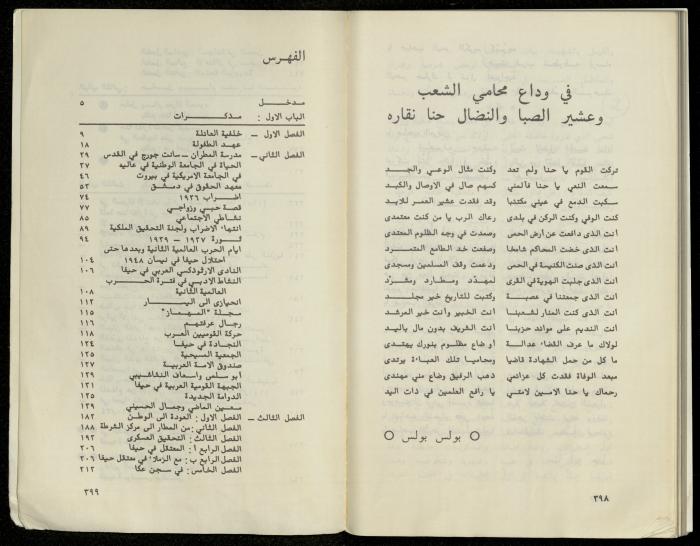 في وداع محامي الشعب
وعشير الصبا والنضال حنا نقاره
تركت القوم يا حنا ولم تعد وكنت مثال الوعي والجد
سمعت النعي يا حنا فآلمني كسهم صال في الاوصال والكبد
سكبت الدمع في عيني مكتئبا وقد فقدت عشير العمر للابد
كنت الوفي وكنت الركن في بلدى رعاك الرب يا من كنت معتمدى
أنت الذى دافعت عن أرض الحمى وصمدت في وجه الظلوم المعتدى
أنت الذى خضت المحاكم شامخا وصفعت خد الطامع المتمرد
أنت الذى صنت الكنيسة في الحمى ودعمت وقف المسلمين ومسجدى
أنت الذى جلبت الهوية في القرى لمهدد ومطارد ومشرد
أنت الذى جمعتنا في عصبة وكتبت للتاريخ خير مجلد
أنت الذى كنت المنار لشعبنا أنت الخبير وأنت خير المرشد
أنت النديم على موائد حزبنا أنت الشريف بدون مال باليد
لولاك ما عرف القضاء عدالة أو ضاع مظلوم بنورك يهتدى
ما كل من حمل الشهادة قاضيا ومحاميا تلك العباءة يرتدى
مبعد الوفاة فقدت كل عزائمي ذهب الرفيق وضاع مني مهندى
رحماك يا حنا الامين لامتي يا رافع العلمين في ذات اليد
○ بولس بولس ○
٣٩٨
الفهرس
مدخل ٥
الباب الاول : مذكرات
الفصل الاول – خلفية العائلة ٩
عهد الطفولة ١٨
الفصل الثاني – مدرسة المطران – سانت جورج في القدس ٢٩
الحياة في الجامعة الوطنية في عاليه ٣٧
في الجامعة الامريكية في بيروت ٤٦
معهد الحقوق في دمشق ٥٣
اضراب ١٩٣٦ ٧٤
قصة حبي وزواجي ٧٧
نشاطي الاجتماعي ٨٥
انتهاء الاضراب ولجنة التحقيق الملكية ٨٩
ثورة ١٩٣٧ – ١٩٣٩ ٩٤
ايام الحرب العالمية الثانية وبعدها حتى
احتلال حيفا في نيسان ١٩٤٨ ١٠٤
النادى الارثوذكسي العربي في حيفا ١٠٦
النشاط الادبي في فترة الحرب
العالمية الثانية ١٠٨
انحيازى الى اليسار ١١٢
مجلة "المهماز" ١١٥
رجال عرفتهم ١١٦
حركة القوميين العرب ١١٨
النجادة في حيفا ١٢٤
الجمعية المسيحية ١٢٥
صندوق الامة العربية ١٢٧
أبو سلمى واسعاف النشاشيبي ١٢٩
الجبهة القومية العربية في حيفا ١٣١
الدوامة الجديدة ١٣٥
معين الماضي وجمال الحسيني ١٣٩
الفصل الثالث – الفصل الاول : العودة الى الوطن ١٨٢
الفصل الثاني : من المطار الى مركز الشرطة ١٨٨
الفصل الثالث : التحقيق العسكرى ١٩٣
الفصل الرابع أ : المعتقل في حيفا ٢٠٦
الفصل الرابع ب : مع الزملاء في معتقل حيفا ٢٠٦
الفصل الخامس : في سجن عكا ٢١٢
٣٩٩